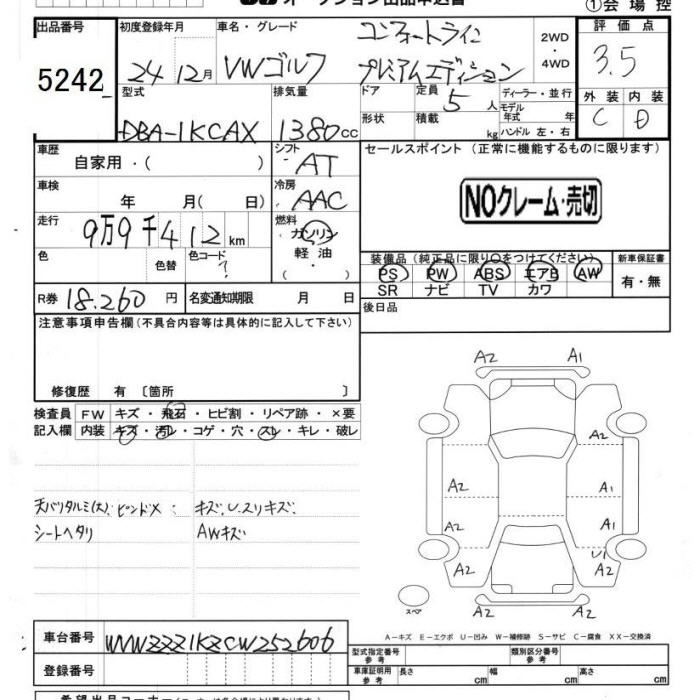 ①会場控
オークション出品申込書
出品番号 初度登録年月 車名・グレード 2WD・4WD 評価点
5242 24 12月 VWゴルフ コンフォートライン プレミアムエディション 3.5
型式 排気量 ドア 定員 5人 ディーラー・並行 外装 内装
DBA-1KCAX 1380cc 形状 積載 kg モデル年式 年 C D
ハンドル 左・右
車歴 シフト セールスポイント（正常に機能するものに限ります）
自家用・（ ） AT
車検 冷房
年 月（ 日） AAC NOクレーム・売切
走行 燃料
9万9千412km ガソリン
軽油
色 色替 色コード ? （・） 装備品（純正品に限り○をつけてください） 新車保証書
PS PW ABS エアB AW 有・無
SR ナビ TV カワ
R券 18,260円 名変通知期限 月 日 後日品
注意事項申告欄（不具合内容等は具体的に記入して下さい）
修復歴 有〔箇所 〕
検査員 FW キズ・飛石・ヒビ割・リペア跡・×要
記入欄 内装 キズ・汚レ・コゲ・穴・スレ・キレ・破レ
天バリタルミ(大) ピンドメ キズ、Uスリキズ
シートヘタリ AWキズ
A2 A1
A2
A2 A1
A2 U1
A2 A2
A2 A2
スペア
A－キズ E－エクボ U－凹み W－補修跡 S－サビ C－腐食 XX－交換済
車台番号 WVWZZZ1KZCW252606
型式指定番号 参考 類別区分番号 参考
登録番号 車庫証明用 参考 長さ cm 幅 cm 高さ cm
希望出品コーナー